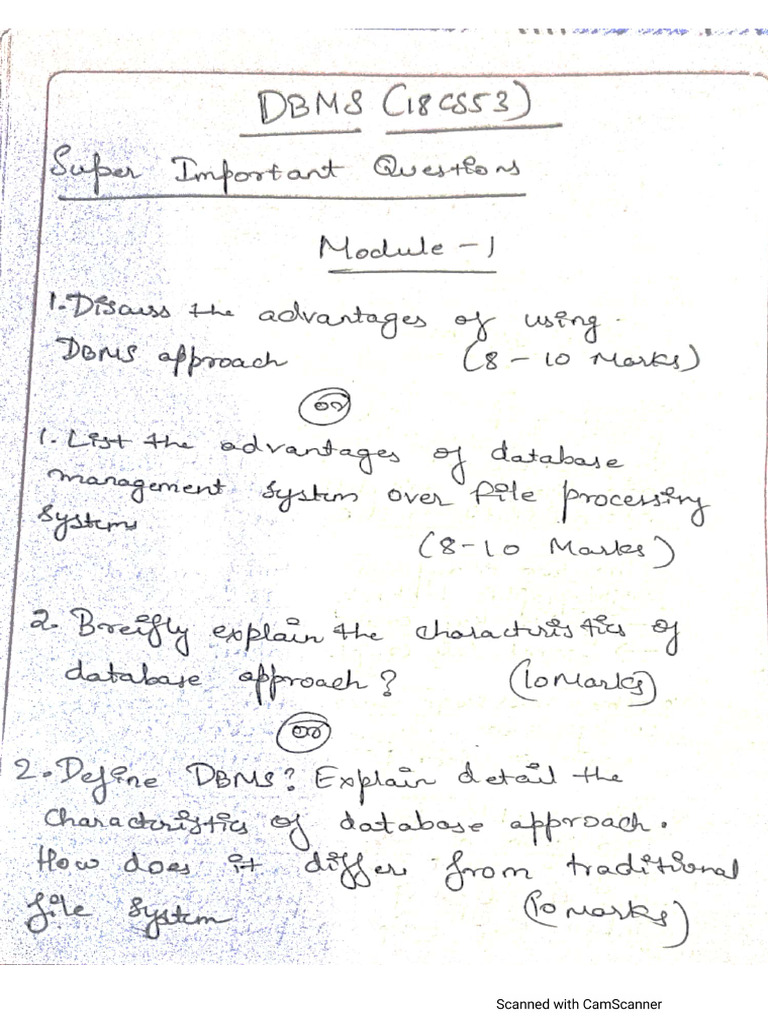 DBMS (18CS53)
Super Important Questions
Module -1
1. Discuss the advantages of using
DBMS approach (8-10 Marks)
or
1. List the advantages of database
management system over file processing
system
(8-10 Marks)
2. Breifly explain the characteristics of
database approach? (10 Marks)
or
2. Define DBMS? Explain detail the
characteristics of database approach.
How does it differ from traditional
file system (10 Marks)
Scanned with CamScanner